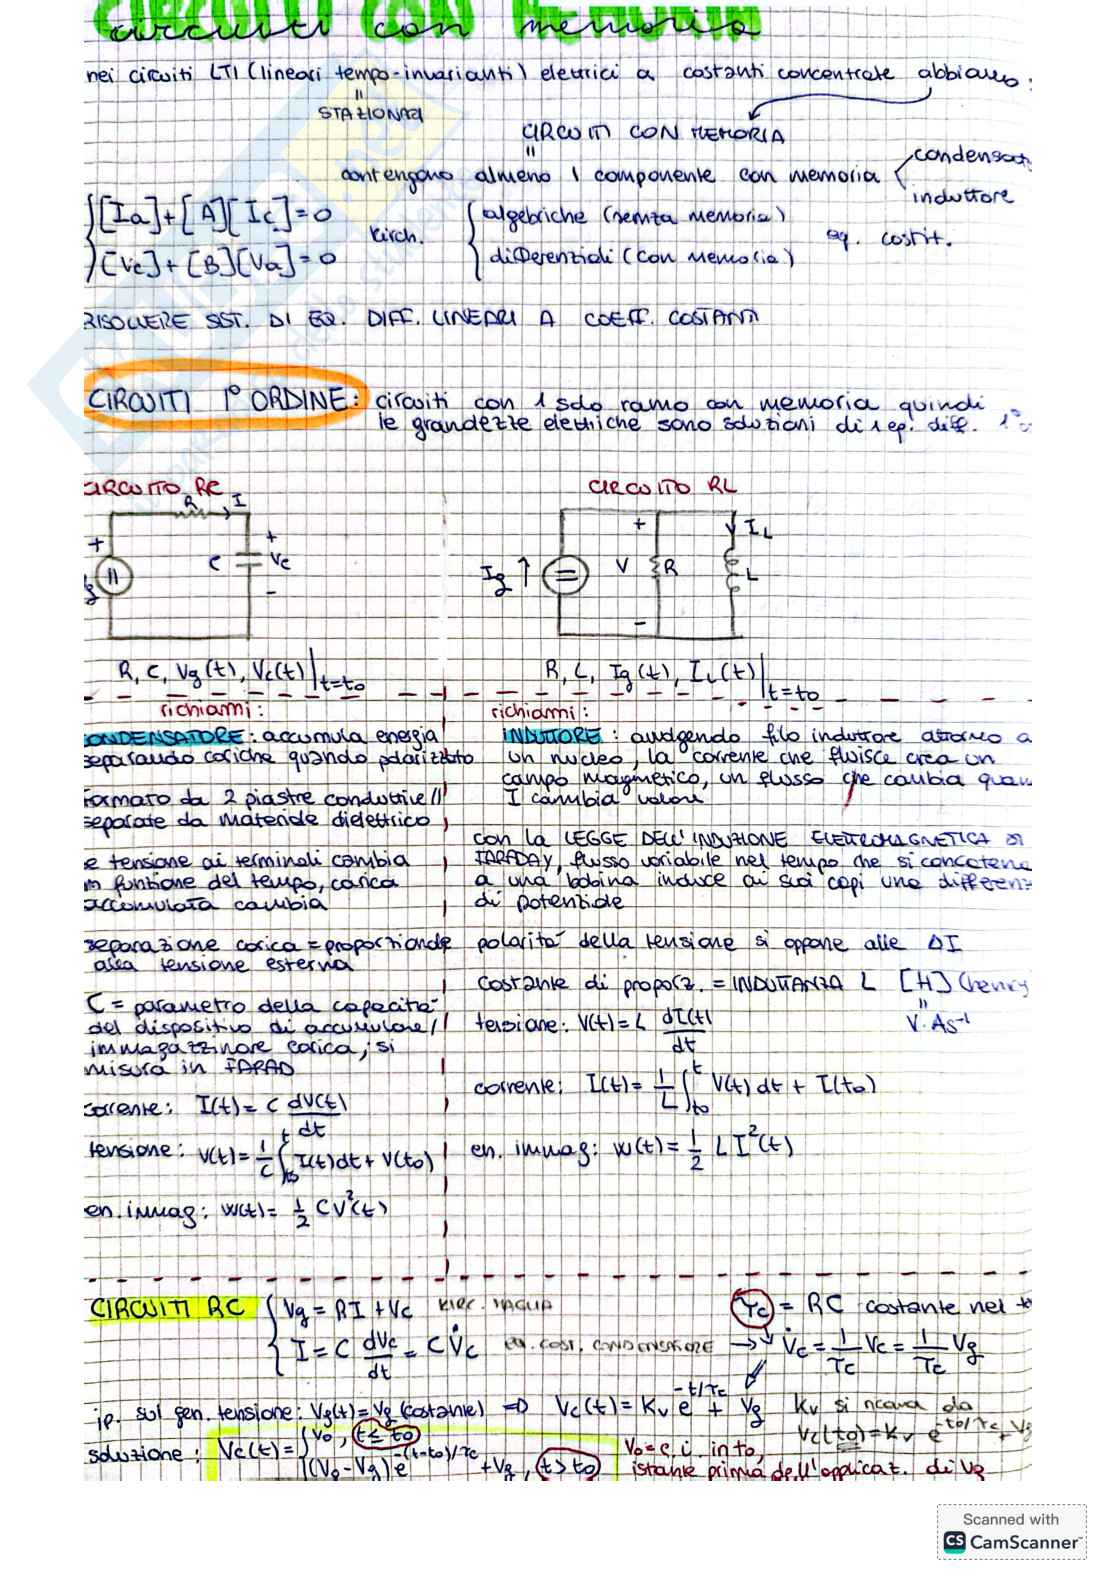 circuiti con memoria
nei circuiti LTI (lineari tempo-invarianti) elettrici a costanti concentrate abbiamo:
=
STAZIONARI
CIRCUITI CON MEMORIA
=
contengono almeno 1 componente con memoria
condensat
induttore
{[Ia]+[A][Ic]=0
[Vc]+[B][Va]=0
kirch.
{algebriche (senza memoria)
differenziali (con memoria)
eq. costit.
RISOLVERE SIST. DI EQ. DIFF. LINEARI A COEFF. COSTANTI
CIRCUITI 1° ORDINE: circuiti con 1 solo ramo con memoria quindi
le grandezze elettriche sono soluzioni di 1 eq. diff. 1°
CIRCUITO RC
CIRCUITO RL
R I
+ C + Vc -
Ig ↑ + V - R IL L
R, C, Vg(t), Vc(t)|t=t0
R, L, Ig(t), IL(t)|t=t0
richiami:
CONDENSATORE: accumula energia
separando cariche quando polarizzato
formato da 2 piastre conduttrive //
separate da materiale dielettrico
se tensione ai terminali cambia
in funzione del tempo, carica
accumulata cambia
separazione carica = proporzionale
alla tensione esterna
C = parametro della capacità
del dispositivo di accumulare/
immagazzinare carica, si
misura in FARAD
corrente: I(t) = C dV(t)/dt
tensione: V(t) = 1/C ∫t0^t I(t)dt + V(t0)
en. immag: W(t) = 1/2 CV²(t)
richiami:
INDUTTORE: avvolgendo filo induttore attorno a
un nucleo, la corrente che fluisce crea un
campo magnetico, un flusso che cambia quan
I cambia valore
con la LEGGE DELL'INDUZIONE ELETTROMAGNETICA DI
FARADAY, flusso variabile nel tempo che si concatena
a una bobina induce ai suoi capi una differenz
di potenziale
polarità della tensione si oppone alle ΔI
costante di proporz. = INDUTTANZA L [H] (henry
=
V·As⁻¹
tensione: V(t) = L dI(t)/dt
corrente: I(t) = 1/L ∫t0^t V(t)dt + I(t0)
en. immag: W(t) = 1/2 LI²(t)
CIRCUITI RC {Vg = RI + Vc KIRC. MAGLIA
I = C dVc/dt = CV̇c eq. cost. CONDENSATORE →
τc = RC costante nel t
V̇c = 1/τc Vc = 1/τc Vg
ip. sul gen. tensione: Vg(t) = Vg (costante) ⇒ Vc(t) = Kv e^-t/τc + Vg Kv si ricava da
Vc(t0) = Kv e^-t0/τc + Vg
soluzione: Vc(t) = {V0, t≤t0
(V0-Vg)e^-(t-t0)/τc + Vg, t>t0
V0 = c.i in t0,
istante prima dell'applicaz. di Vg
Scanned with
CS CamScanner